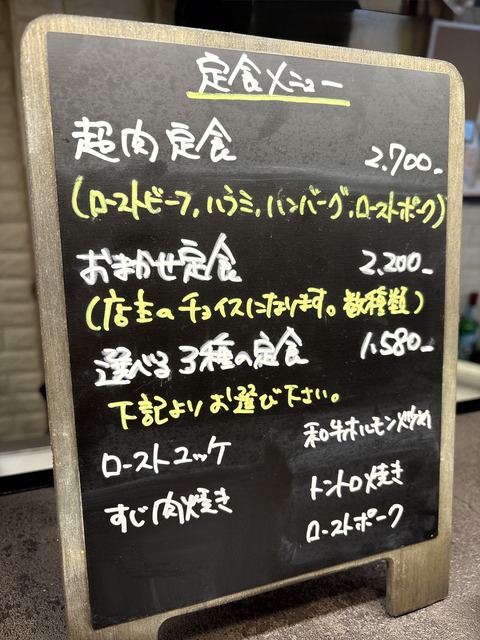 定食メニュー
超肉定食 2.700-
(ローストビーフ,ハラミ,ハンバーグ,ローストポーク)
おまかせ定食 2.200-
(店主のチョイスになります。数種類)
選べる3種の定食 1.580-
下記よりお選び下さい。
ローストユッケ 和牛ホルモン炒め
すじ肉焼き トントロ焼き
ローストポーク